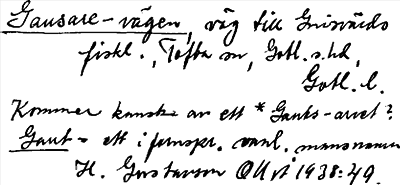 Gausare-vägen, väg till Gnisvärds
fiskl., Tofta sn, Gotl. s. hd,
Gotl. l.
Kommer kanske av ett *Gauts-arvet?
Gaut- ett i fornspr. vanl. mansnamn
H. Gustavson OUÅ 1938:49.